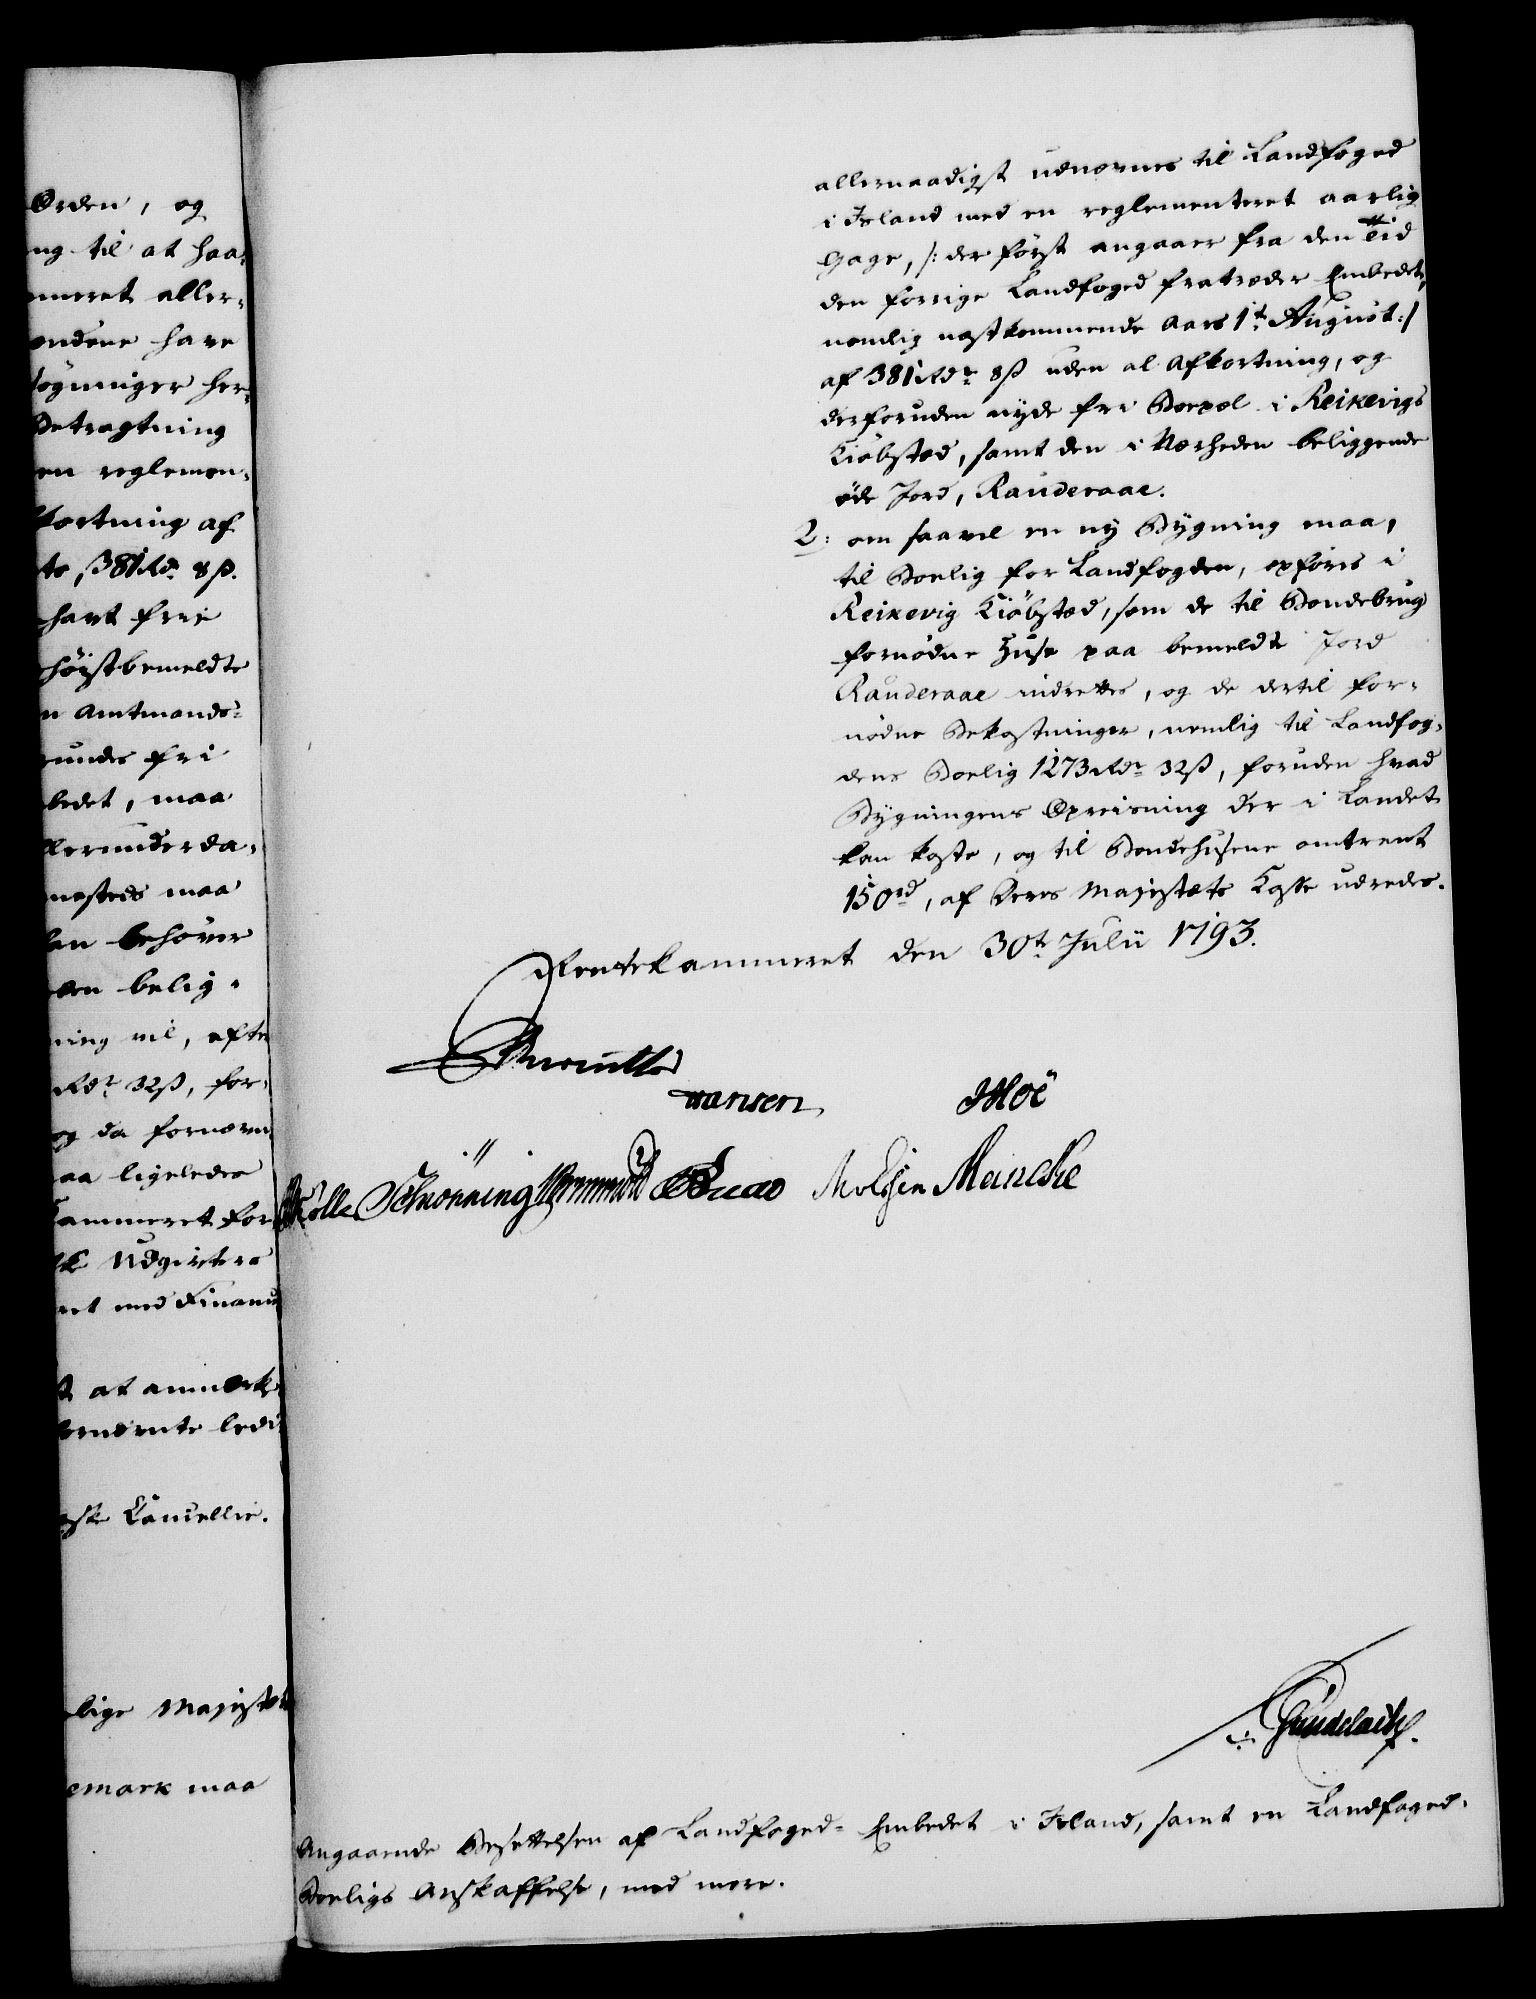 Orden, og
ng til at haa-
mmeret aller-
endene have
søgninger her-
Betragtning
en reglemen-
kortning af
te, 381 Rdr 8ß.
havt frie
høistbemeldte
n Amtmands-
undes fri
bedet, maa
llerunderda-
nesteds maa
len behøver
den belig-
ning vil, efter
Rdr 32ß, for-
og da fornævn
aa ligeledes
Kammeret for
Udgivters
ret med Finants
at anmærk-
ledi
ske Cancellie.
lige Majestæt
emark maa
allernaadigst udnævnes til Landfoged
i Island med en reglementeret aarlig
Gage, /: der först angaaer fra den Tid
den forrige Landfoged fratræder Embedet,
nemlig næstkommende Aars 1t August :/
af 381 Rdr 8ß uden al Afkortning, og
derforuden nyde frie Boepæl i Reikevigs
Kiöbsted, samt den i Nærheden beliggende
øde Jord, Rauderaae.
2: om saavel en ny Bygning maa,
til Boelig for Landfogden, opföres i
Reikevig Kiöbsted, som de til Bondebrug
fornødne Huse paa bemeldte Jord
Rauderaae indrettes, og de dertil for-
nödne Bekostninger, nemlig til Landfog-
dens Boelig 1273 Rdr 32ß, foruden hvad
Bygningens Opreisning der i Landet
kan koste, og til Bondehusene omtrent
150 rd, af Deres Majestæts Casse udredes.
Rentekammeret den 30te Julii 1793.
Hansen
Moe
Schiönning Wormskiold Meincke
Gundelach.
Angaaende Besættelsen af Landfoged-Embedet i Island, samt en Landfoged-
Boeligs Anskaffelse, med mere.